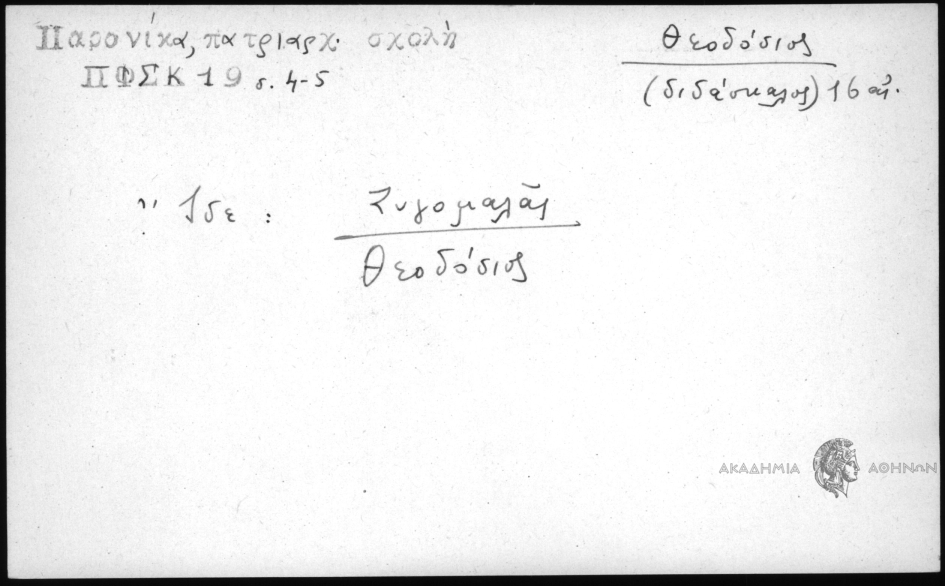 Παρανίκα, πατριαρχ. σχολή
ΠΦΣΚ 19 σ. 4-5
Θεοδόσιος
(διδάσκαλος) 16 αἰ.
Ἴδε :
Ζυγομαλᾶς
Θεοδόσιος
ΑΚΑΔΗΜΙΑ ΑΘΗΝΩΝ